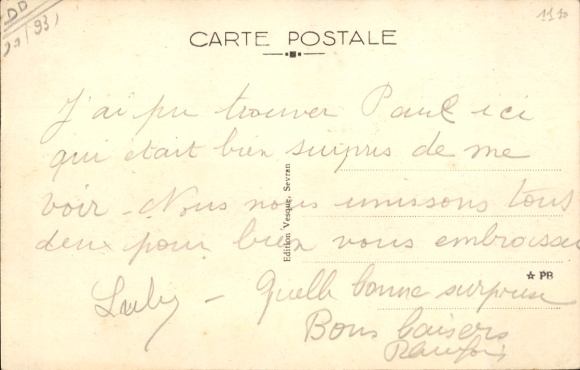 DD
93
1130
CARTE POSTALE
J'ai pu trouver Paul ici
qui était bien surpris de me
voir - Nous nous unissons tous
deux pour bien vous embrasser
Edition Vesque, Sevran
★ PB
Luby - Quelle bonne surprise
Bons baisers